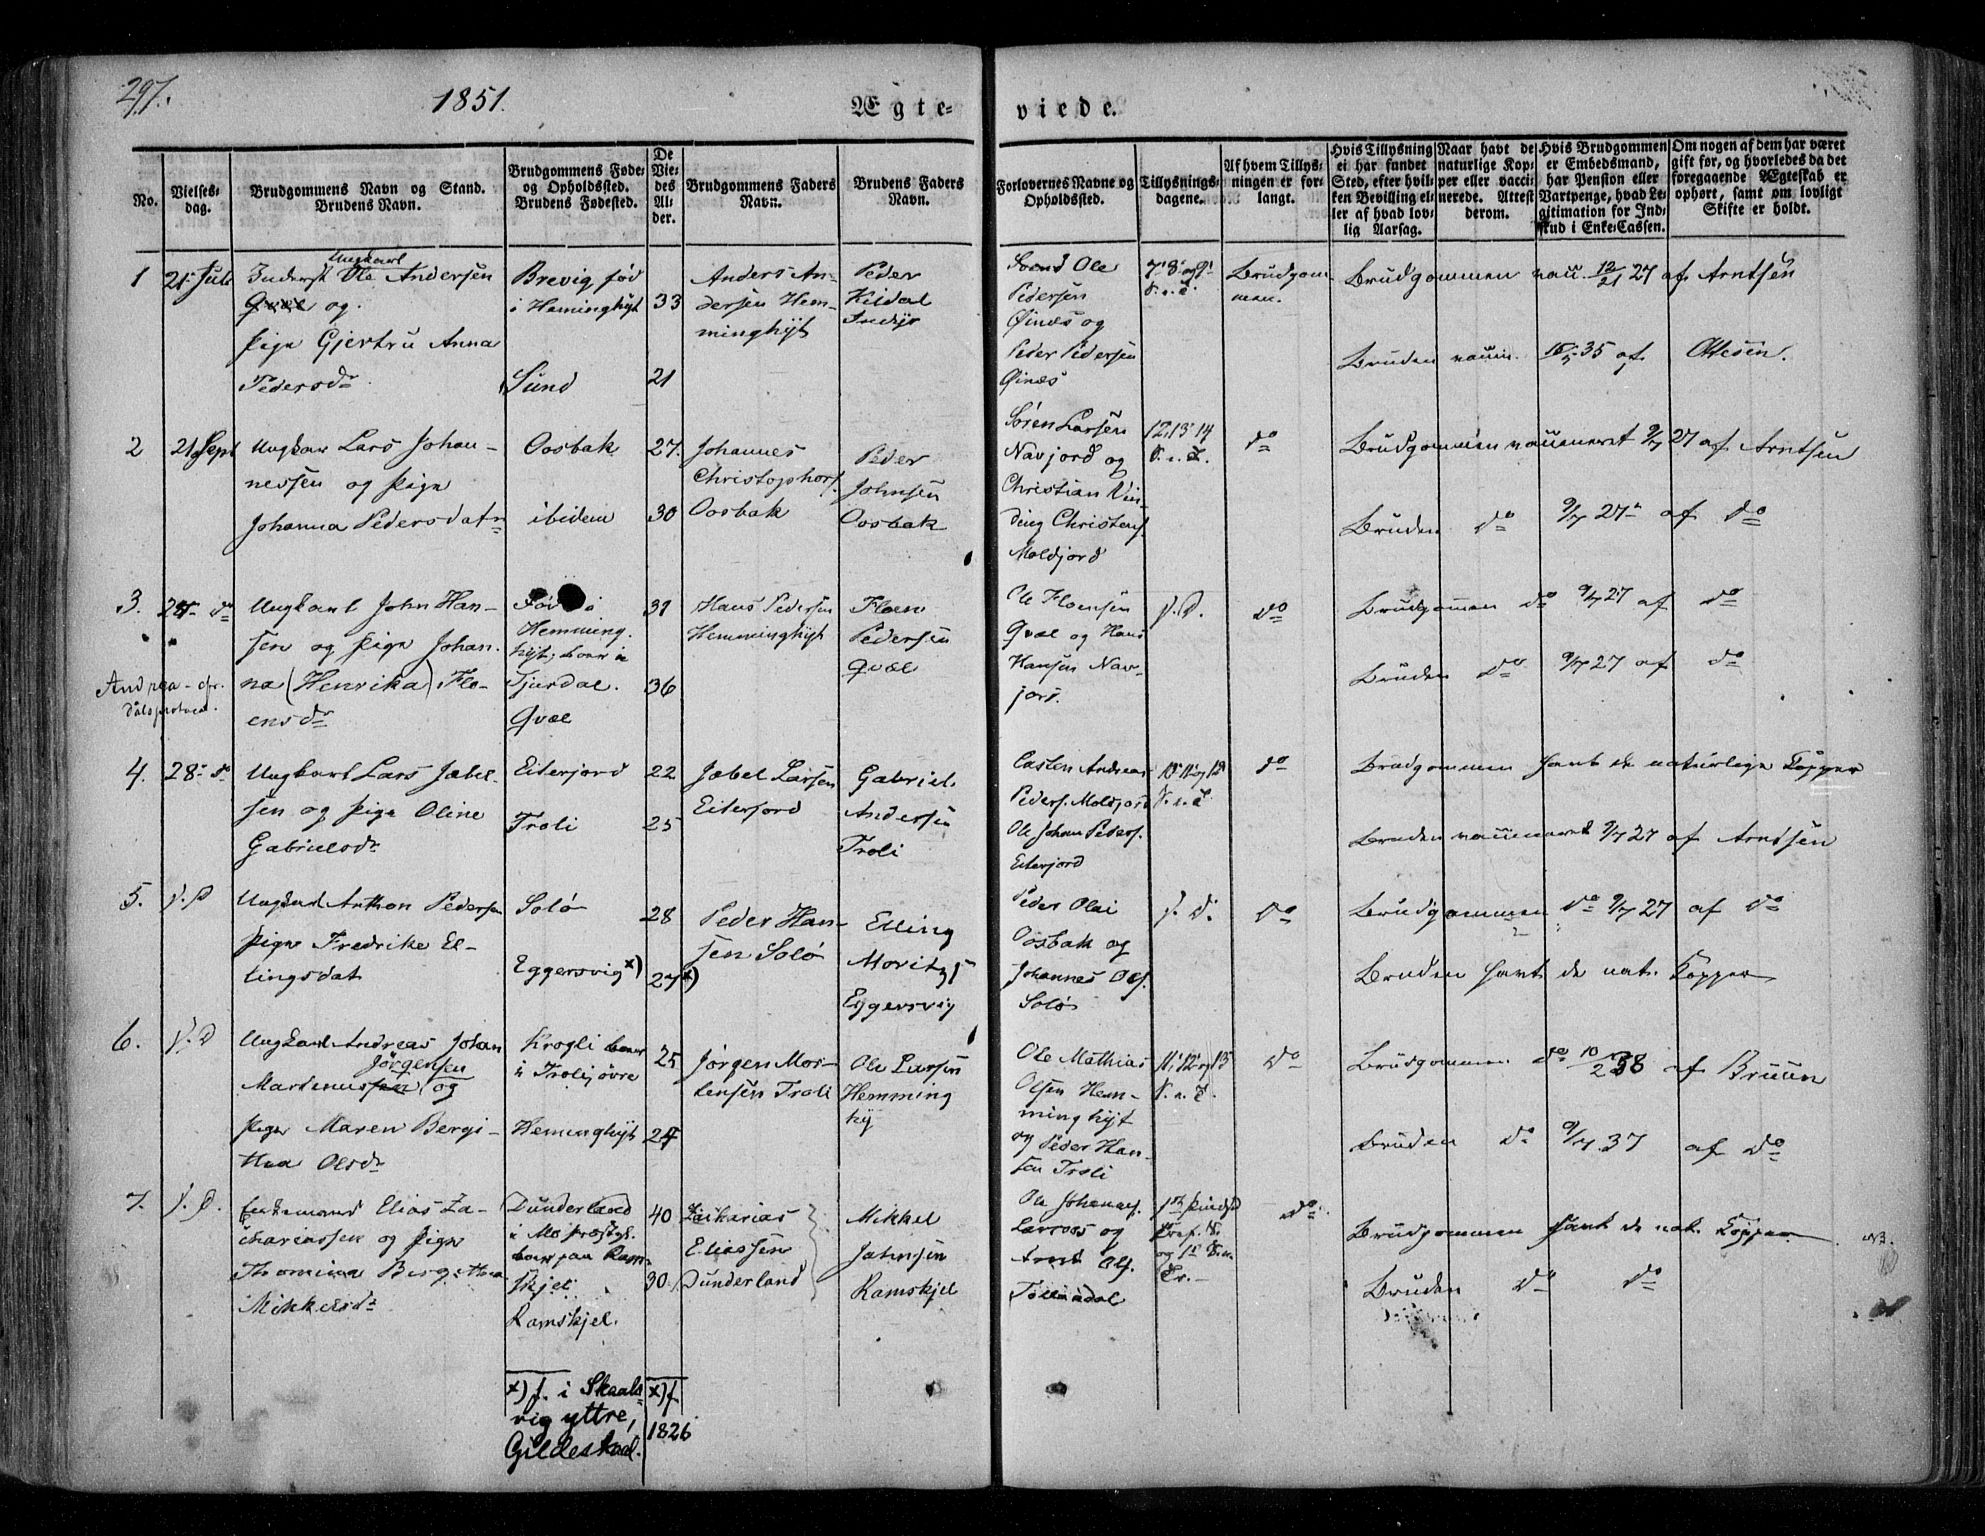 297.
1851.
Ægte-
viede.
No.
Vielses-
dag.
Brudgommens Navn og Stand.
Brudens Navn.
Brudgommens Føde-
og Opholdssted.
Brudens Fødested.
De
Vie-
des
Al-
der.
Brudgommens Faders
Navn.
Brudens Faders
Navn.
Forlovernes Navne og
Opholdssted.
Tillysnings-
dagene.
Af hvem Tillys-
ningen er for-
langt.
Hvis Tillysning
ei har fundet
Sted, efter hvil-
ken Bevilling el-
ler af hvad lov-
lig Aarsag.
Naar havt de
naturlige Kop-
per eller vacci-
nerede. Attest
derom.
Hvis Brudgommen
er Embedsmand,
har Pension eller
Vartpenge, hvad Le-
gitimation for Ind-
skud i Enke-Cassen.
Om nogen af dem har været
gift før, og hvorledes da det
foregaaende Ægteskab er
ophørt, samt om lovligt
Skifte er holdt.
1
21 Juli
Ungkarl
Inderst Ole Andersen
Qvæl og
Pige Gjertru Anna
Pedersdr
Brevig fød
i Heminghyt
Sund
33
21
Anders An-
dersen Hem-
minghyt
Peder
Kildal
Svend Ole
Pedersen
Øinæs og
Peder Pedersen
Øinæs
7' 8' og 9'
S. e. T.
Brudgom-
men.
Brudgommen vacc. 12/21 27 af Arntsen
Bruden vaccin. 35 af Ottesen.
2
21 Sept
Ungkar Lars Johan-
nessen og Pige
Johanna Pedersdat
Oosbak
ibidem
27.
30
Johannes
Christophers.
Oosbak
Peder
Johnsen
Oosbak
Søren Larsen
Navjord og
Christian
Christens.
Moldjord
12, 13, 14
S. e. T.
do
Brudgommen vaccineret 9/7 27 af Arntsen
Bruden do 9/7 27 af do
3.
do
Andrea - cfr.
Ungkarl John Han-
sen og Pige Johan-
na (Henrika) Flo-
ensdr
Hemming-
hyt, boer i
Tjurdal.
Qvæl
31
36
Hans Pedersen
Hemminghyt
Floen
Pedersen
Qvæl
Ole Floensen
Qvæl og Hans
Hansen Nav-
jord.
s. D.
do
Brudgommen do 9/7 27 af do
Bruden do 9/7 27 af do
4.
28 do
Ungkarl Lars Jæbel-
sen og Pige Oline
Gabrielsdr
Eiterjord
Troli
22
25
Jæbel Larsen
Eiterjord
Gabriel
Andersen
Troli
Casten Andreas
Peders. Moldjord
Ole Johan Peders.
Eiterjord
10' 11' og 12'
S. e. T.
do
Brudgommen havt de naturlige Kopper
Bruden vaccineret 9/7 27 af Arntsen
5.
s. D
Ungkarl Anthon Pedersen
Pige Fredrike El-
lingsdat
Solø
Eggersvig x)
28
27 x)
Peder Han-
sen Solø
Elling
Moritzs
Eggersvig
Peder Olai
Oosbak og
Johannes Ols.
Solø
s. D.
do
Brudgommen do 9/7 27 af do
Bruden havt de nat. Kopper
6.
s. D
Ungkarl Andreas Johan
Jörgensen
Martinussen og
Pige Maren Bergi-
tha Olsdr
Krogli boer
i Troli, övre
Heminghyt
25
24
Jørgen Mor-
tensen Troli
Ole Larsen
Hemming
hy
Ole Mathias
Olsen Hem-
minghyt
og Peder Han-
sen Troli
11' 12' og 13
S. e. T.
do
Brudgommen do 10/2 38 af Bruun
Bruden do 9/7 37 af do
7.
s. D.
Enkemand Elias Za-
chariassen og Pige
Thomina Bergitha
Mikkelsdr
Dunderland
i Mo Præstgl.
boer paa Ram-
skjel
Ramskjel.
40
30
Zacharias
Eliassen
Dunderland
Mikkel
Johnsen
Ramskjel
Ole Johannes.
og
Arnt Ols.
Tollaadal
do
Brudgommen havt de nat. Kopper
Bruden do do
x) f. i Skaals-
vig yttre,
Gildeskaal.
x) f.
1826